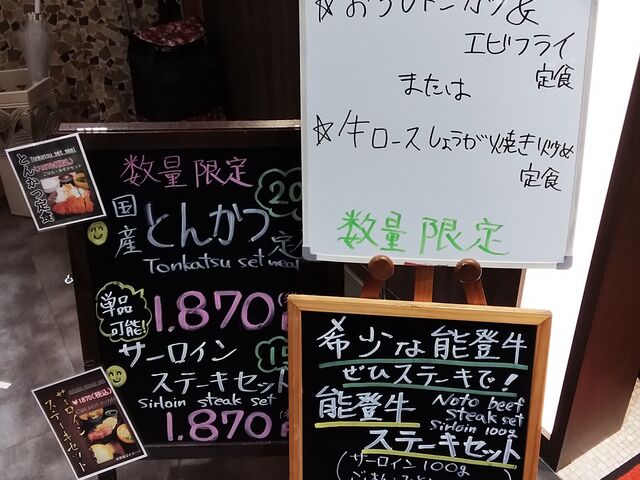 ☆おろしトンカツ&
エビフライ
定食
または
☆牛ロースしょうが焼き炒め
定食
数量限定
数量限定
20
国産とんかつ定
Tonkatsu set meal
単品
可能!
1.870
サーロイン
15
ステーキセット
Sirloin steak set
1.870
Tonkatsu set meal
¥1870(税込)
とんかつ定食
¥1870(税込)
サーロイン
ステーキセット
希少な能登牛
ぜひステーキで!
能登牛
Noto beef
steak set
sirloin 100g
ステーキセット
(サーロイン100g